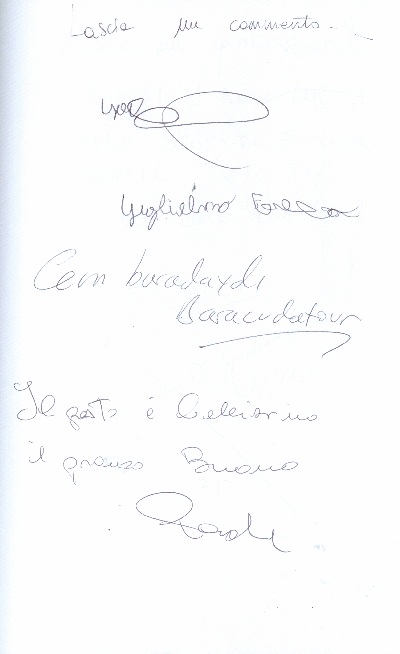 Lascia un commento.
Guglielmo
Cem buradaydı
Baracudatour
Il posto è bellissimo
il pranzo Buono